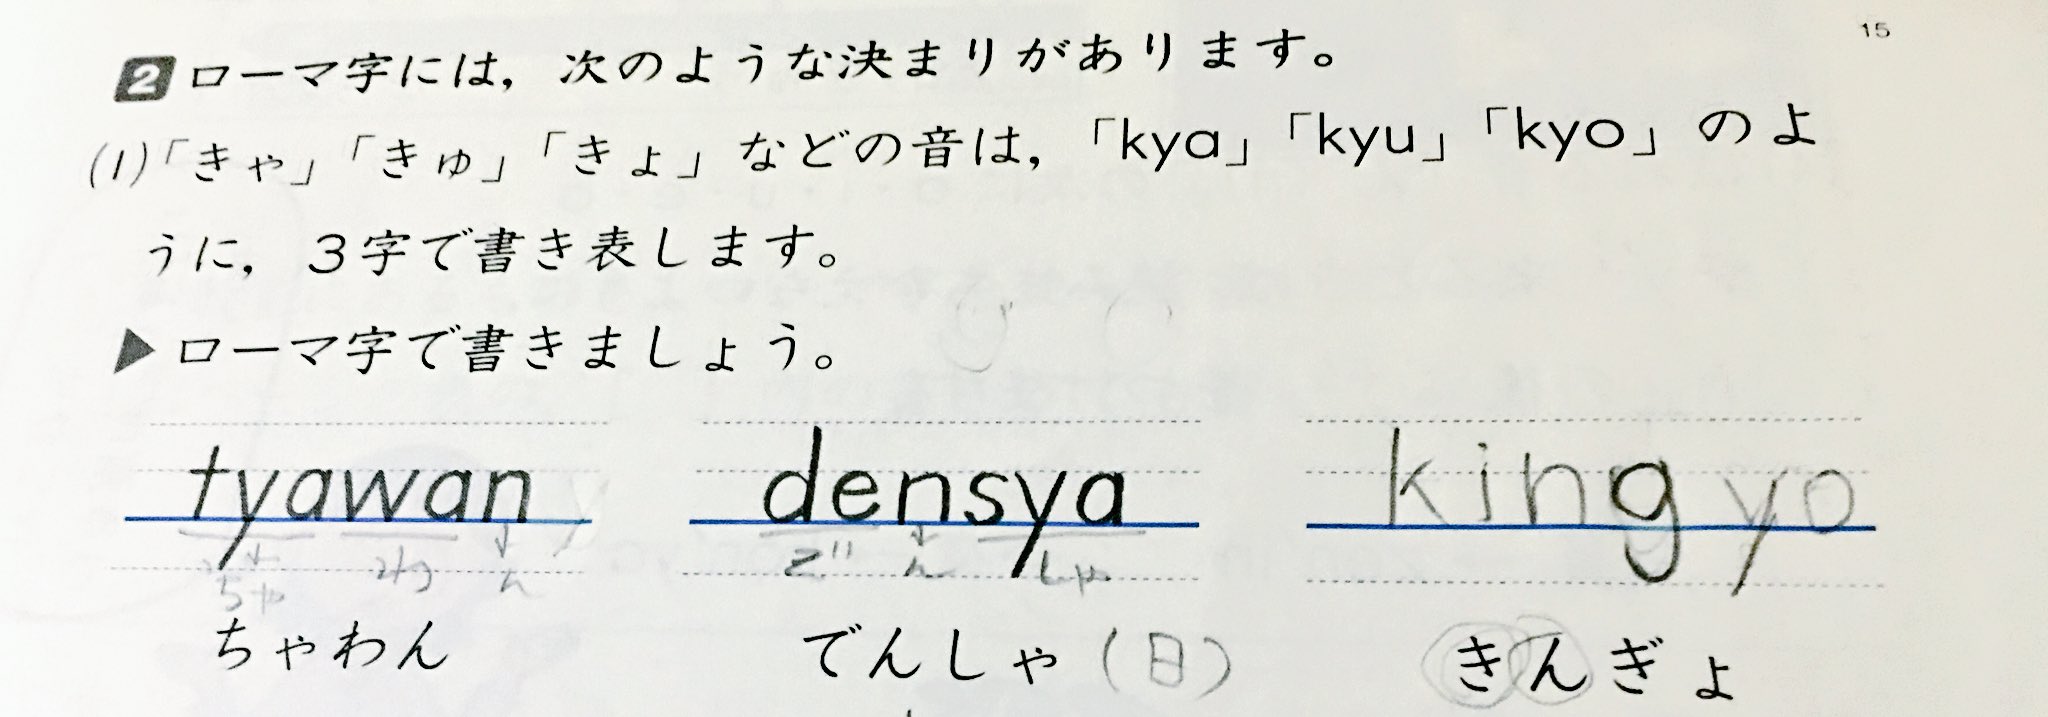 15
2 ローマ字には，次のような決まりがあります。
(1)「きゃ」「きゅ」「きょ」などの音は，「kya」「kyu」「kyo」のよ
うに，3字で書き表します。
▶ローマ字で書きましょう。
tyawan densya kingyo
ちゃ わ ん で ん しゃ
ちゃわん でんしゃ（日） きんぎょ